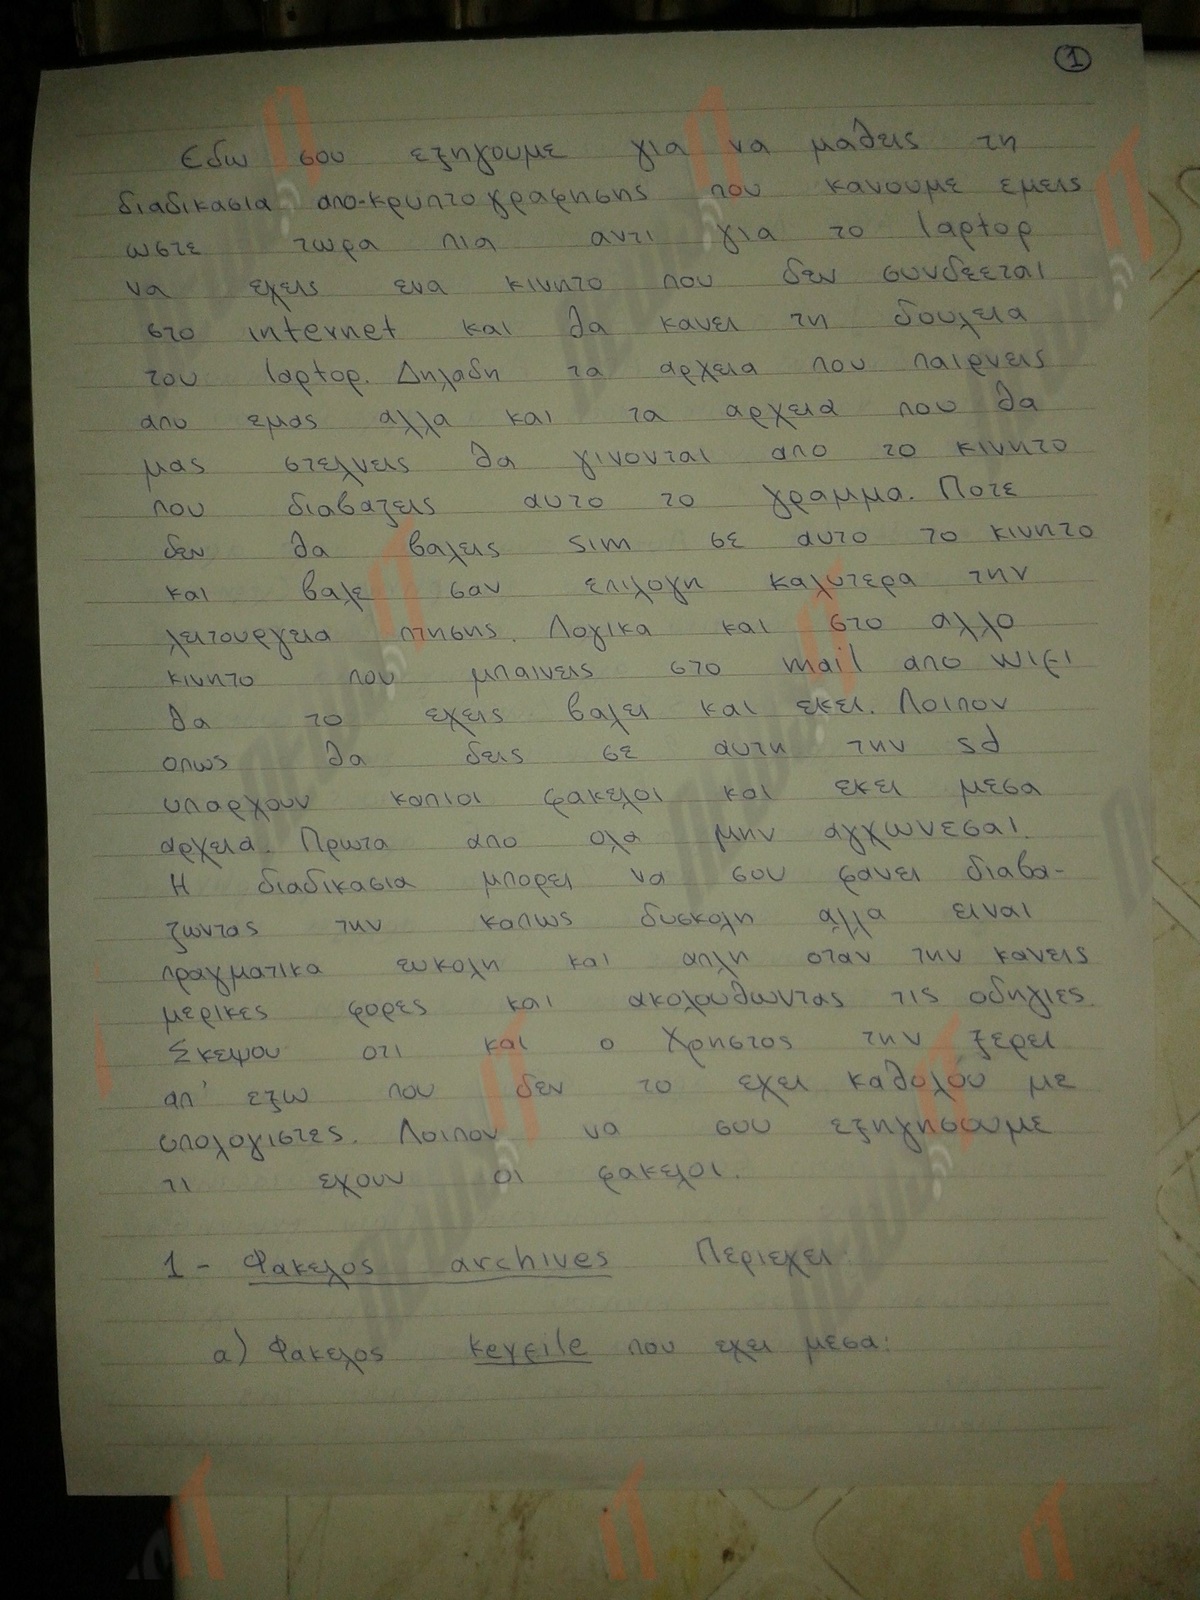 ①
Εδω σου εξηγουμε για να μαθεις τη
διαδικασια απο-κρυπτογραφησης που κανουμε εμεις
ωστε τωρα πια αντι για το laptop
να εχεις ενα κινητο που δεν συνδεεται
στο internet και θα κανει τη δουλεια
του laptop. Δηλαδη τα αρχεια που παιρνεις
απο εμας αλλα και τα αρχεια που θα
μας στελνεις θα γινονται απο το κινητο
που διαβαζεις αυτο το γραμμα. Ποτε
δεν θα βαλεις sim σε αυτο το κινητο
και βαλε σαν επιλογη καλυτερα την
λειτουργεια πτησης. Λογικα και στο αλλο
κινητο που μπαινεις στο mail απο wifi
θα το εχεις βαλει και εκει. Λοιπον
οπως θα δεις σε αυτη την sd
υπαρχουν καποιοι φακελοι και εκει μεσα
αρχεια. Πρωτα απο ολα μην αγχωνεσαι.
Η διαδικασια μπορει να σου φανει διαβα-
ζωντας την καπως δυσκολη αλλα ειναι
πραγματικα ευκολη και απλη οταν την κανεις
μερικες φορες και ακολουθωντας τις οδηγιες.
Σκεψου οτι και ο Χρηστος την ξερει
απ' εξω που δεν το εχει καθολου με
υπολογιστες. Λοιπον να σου εξηγησουμε
τι εχουν οι φακελοι.
1 - Φακελος archives Περιεχει:
α) Φακελος keyfile που εχει μεσα: